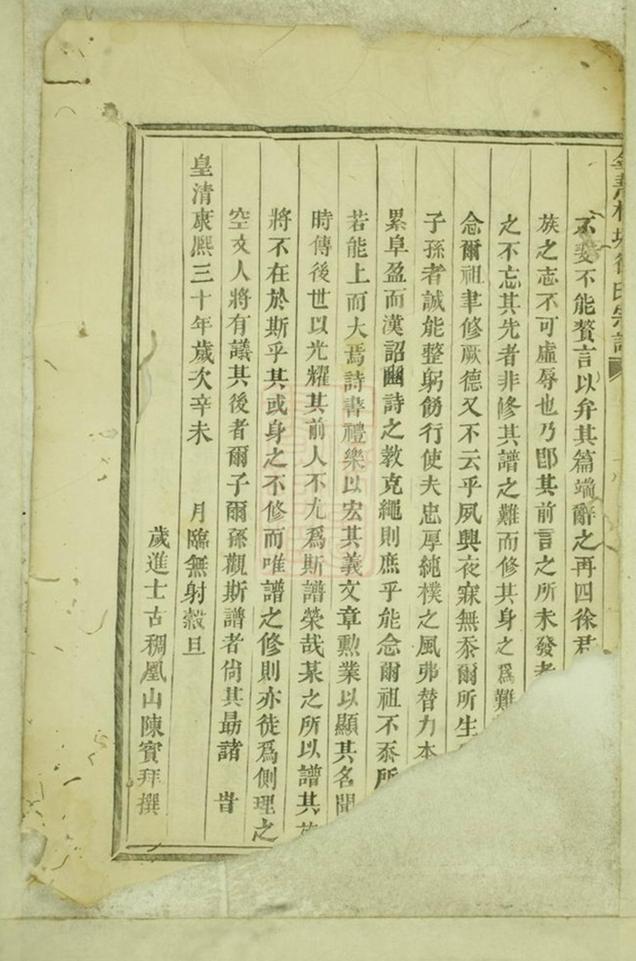 徐氏宗譜
不斐不能贅言以弁其篇端辭之再四徐君
族之志不可虛辱也乃卽其前言之所未發者
之不忘其先者非修其譜之難而修其身之爲難
念爾祖聿修厥德又不云乎夙興夜寐無忝爾所生
子孫者誠能整躬飭行使夫忠厚純樸之風弗替力本
累阜盈而漢詔豳詩之教克繩則庶乎能念爾祖不忝所
若能上而大焉詩書禮樂以宏其義文章勳業以顯其名聞
時傳後世以光耀其前人不尤爲斯譜榮哉某之所以譜其
將不在於斯乎其或身之不修而唯譜之修則亦徒爲側理之
空文人將有議其後者爾子爾孫觀斯譜者尙其勗諸 旹
皇清康熙三十年歲次辛未 月臨無射穀旦
歲進士古稠凰山陳賓拜撰